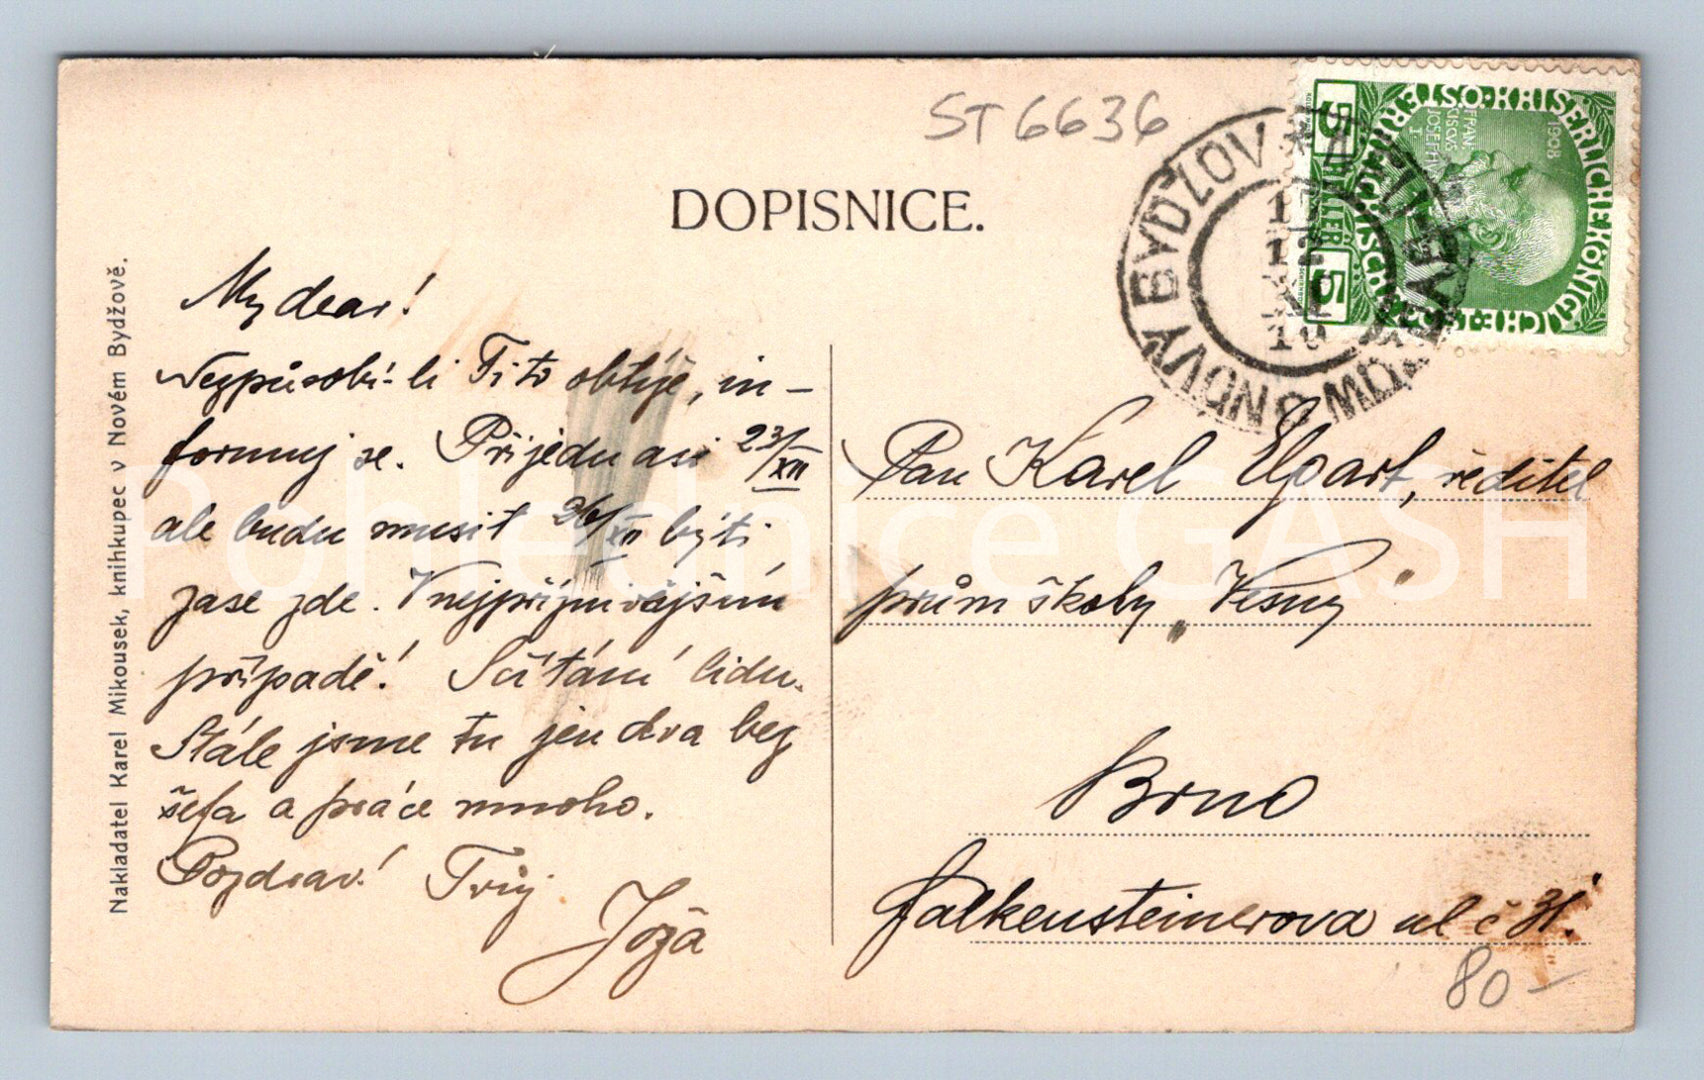 ST 6636
DOPISNICE.
NOVÝ BYDŽOV * NEU BIDSCHOW
12
10
KAISERLICHE KÖNIGLICHE ÖSTERREICHISCHE
1908
FRAN
CISCVS
IOSEPH
I
5 HELLER 5
Nakladatel Karel Mikousek, knihkupec v Novém Bydžově.
My dear!
Nezpůsobí-li Ti to obtíže, in-
formuj se. Přijedu asi 23/XII
ale budu musit 26/XII býti
zase zde. V nejpříznivějším
případě! Sčítání lidu.
Stále jsme tu jen dva bez
šéfa a práce mnoho.
Pozdrav! Tvůj
Joža
Pan Karel Elpart, ředitel
prům školy „Vesny"
Brno
Falkensteinerova ul č 31.
80-
Pohlednice GASH